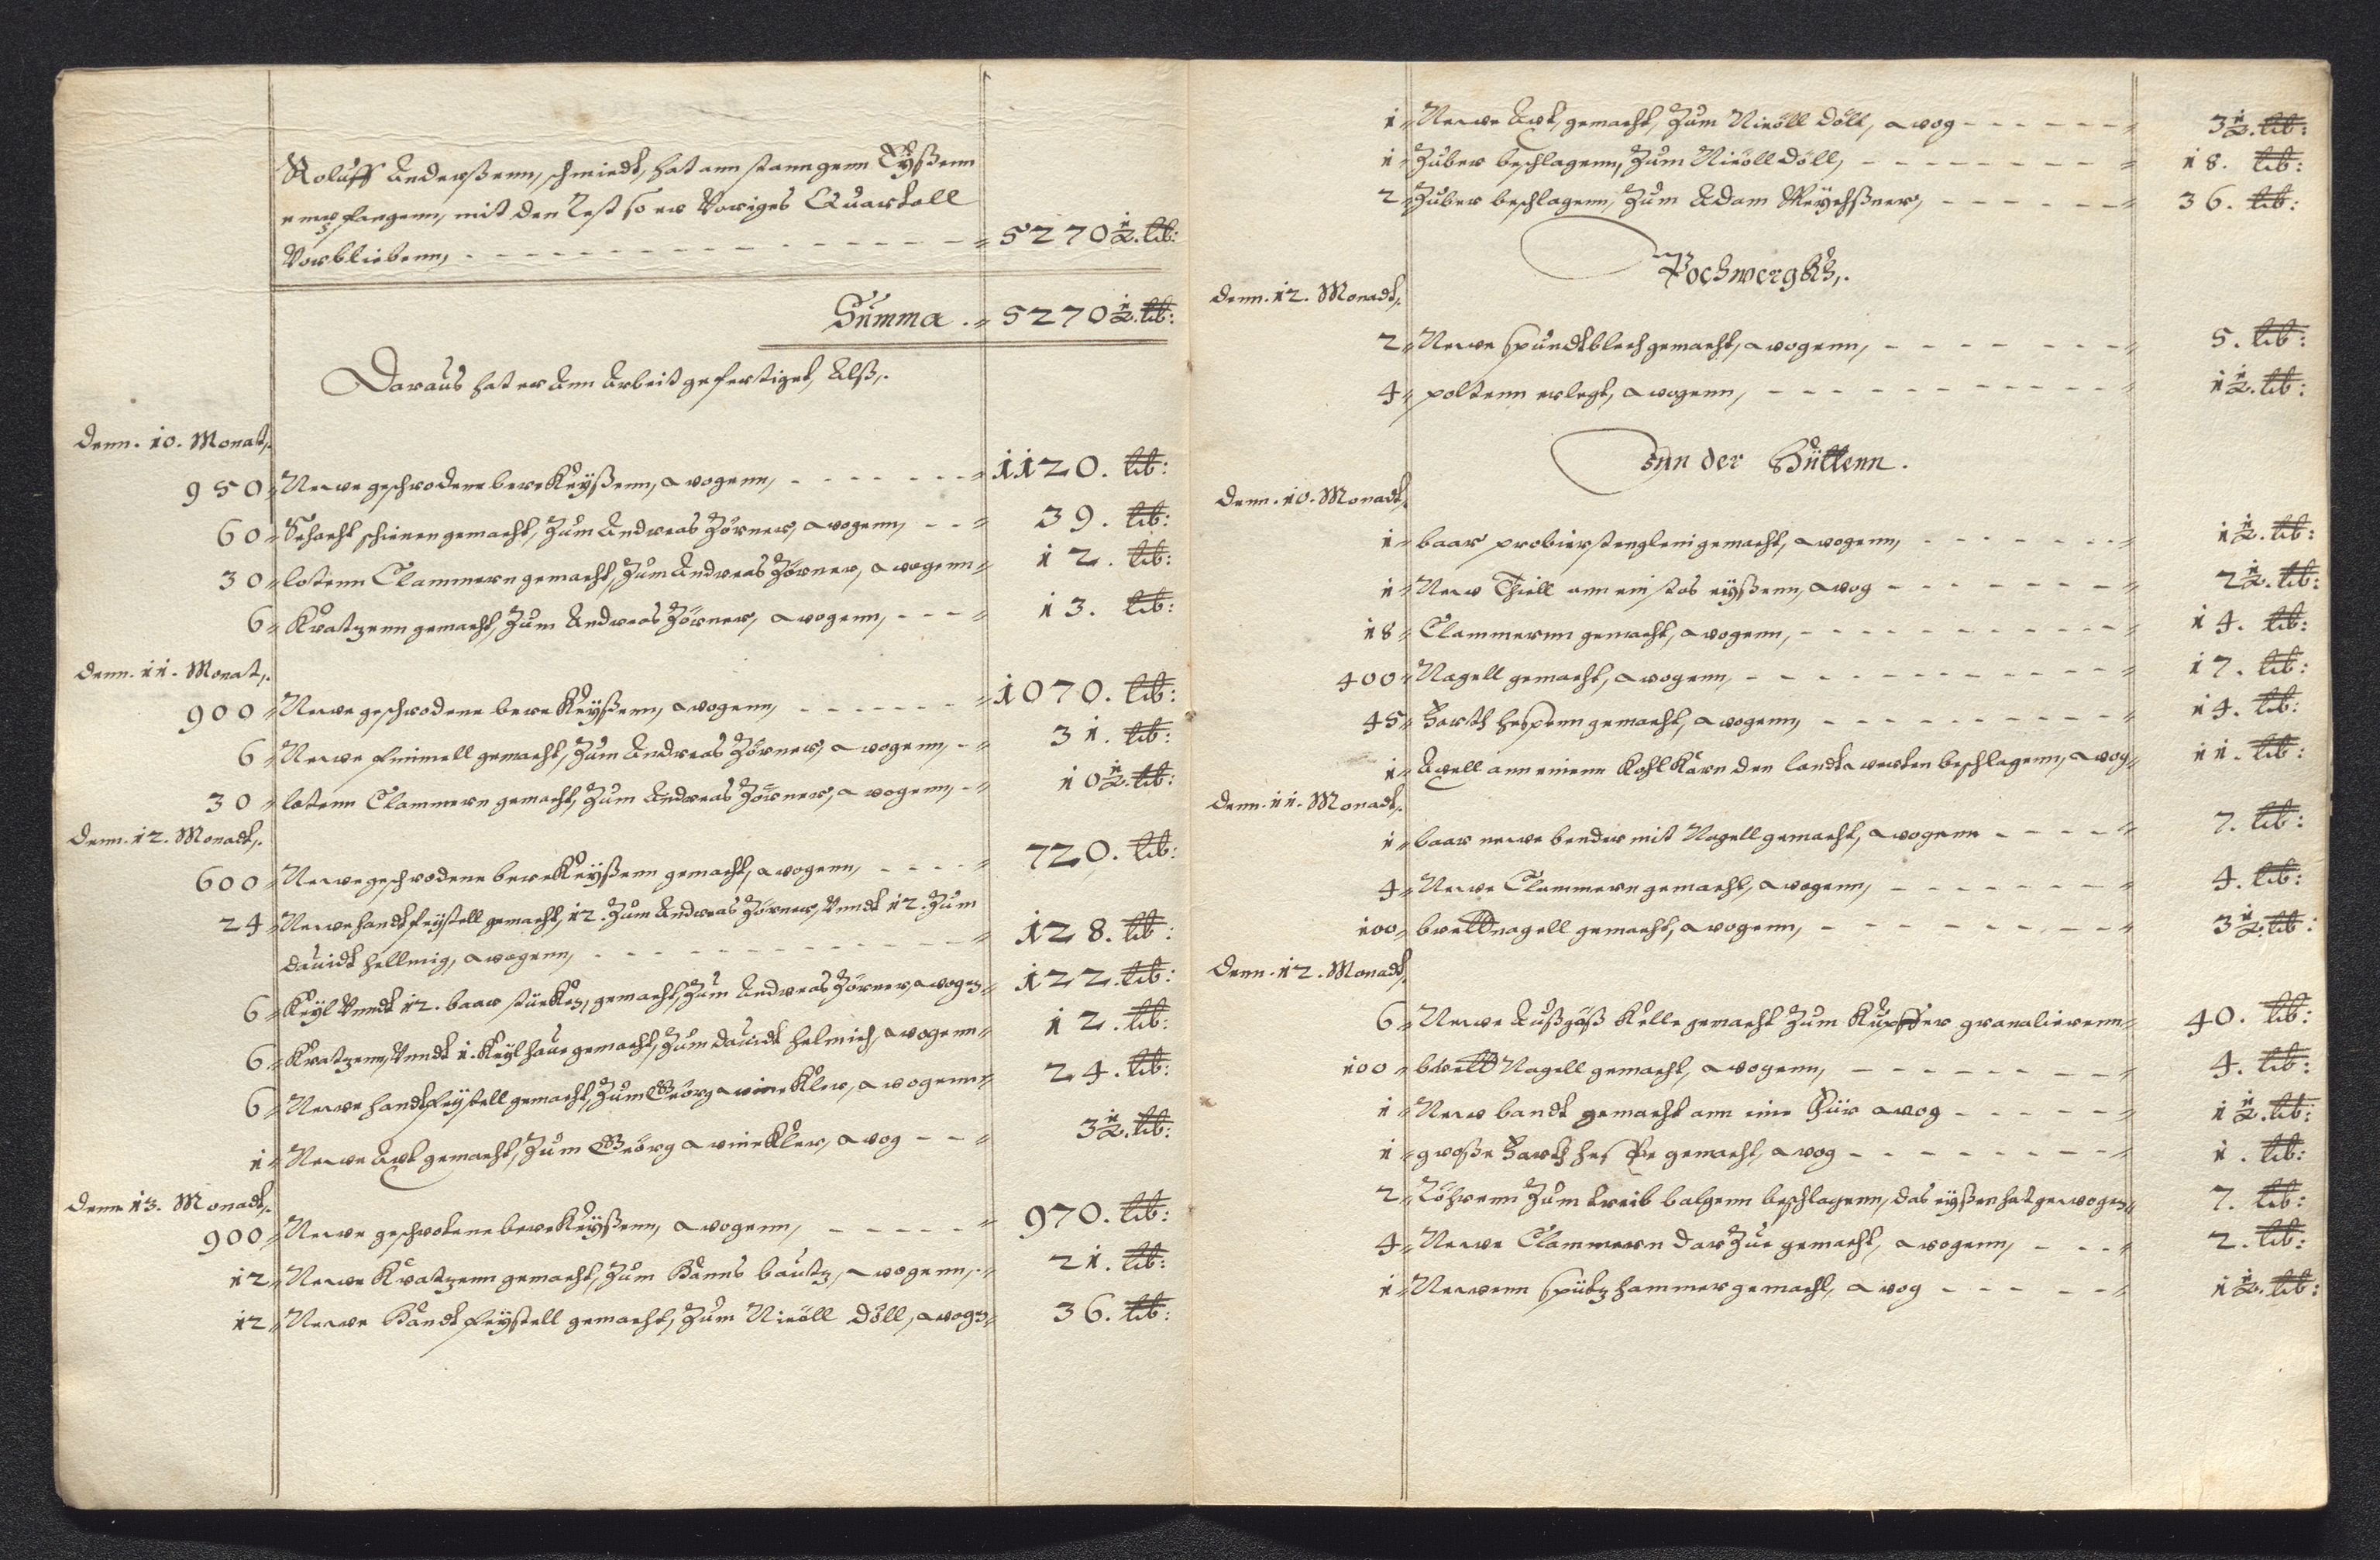 Roluff Anderßenn, schmiedt, hat ann stanngenn Eÿßenn
empfangenn, mit den Rest so er Voriges Quartall
Vorbliebenn, = 5270 1/2. lib:
Summa. = 5270 1/2. lib:
Daraus hat er Ann Arbeit gefertiget, Alß,.
Denn. 10. Monat,.
950 = Newe geschrodene berckeÿßenn, wogenn, = 1120. lib:
60 = Schacht schienen gemacht, Zum Andreas Zörner, wogenn, = 39. lib:
30 = lotenn Clammern gemacht, Zum Andreas Zörner, wogenn = 12. lib:
6 = Kratzenn gemacht, Zum Andreas Zörner, wogenn, = 13. lib:
Denn. 11. Monat,.
900 = Newe geschrodene berckeÿßenn, wogenn, = 1070. lib:
6 = Newe fimmell gemacht, Zum Andreas Zörner, wogenn, = 31. lib:
30 = lotenn Clammern gemacht, Zum Andreas Zörner, wogenn, = 10 1/2. lib:
Denn. 12. Monadt,.
600 = Newe geschrodene berckeÿßenn gemacht, wogenn, = 720. lib:
24 = Newe handtfeÿstell gemacht, 12. Zum Andreas Zörner, Vnndt 12. Zum
Dauidt hellmig, wogenn, = 128. lib:
6 = Keÿl Vnndt 12. baar stücke, gemacht, Zum Andreas Zörner, wogen = 122. lib:
6 = Kratzenn, Vnndt 1. Keÿlhaue gemacht, Zum Dauidt helmich, wogenn = 12. lib:
6 = Newe handtfeÿstell gemacht, Zum Geörg winckler, wogenn = 24. lib:
1 = Newe Axt gemacht, Zum Geörg winckler, wog = 3 1/2. lib:
Denn 13. Monadt,.
900 = Newe geschrotene berckeÿßenn, wogenn, = 970. lib:
12 = Newe Kratzenn gemacht, Zum Hanns bautz, wogenn, = 21. lib:
12 = Newe Handtfeÿstell gemacht, Zum Nicöll Döll, wogen = 36. lib:
1 = Newe Axt, gemacht, Zum Nicöll Döll, wog = 3 1/2. lib:
1 = Zuber beschlagenn, Zum Nicöll Döll, = 18. lib:
2 = Zuber beschlagenn, Zum Adam Meÿchßner, = 36. lib:
Pochwergkh,.
Denn. 12. Monadt,.
2 = Newe spundtblech gemacht, wogenn, = 5. lib:
4 = poltenn erlegt, wogenn, = 1 1/2. lib:
Inn der Hüttenn.
Denn. 10. Monadt,.
1 = baar probierstenglein gemacht, wogenn, = 1 1/2. lib:
1 = New Thiell ann ein stos eÿßenn, wog = 2 1/2. lib:
18 = Clammernn gemacht, wogenn, = 14. lib:
400 = Nagell gemacht, wogenn, = 17. lib:
45 = Harth hespenn gemacht, wogenn, = 14. lib:
1 = Axell ann einenn Kohl Karn den beschlagenn, wog = 11. lib:
Denn. 11. Monadt,.
1 = baar newe bender mit Nagell gemacht, wogenn = 7. lib:
4 = Newe Clammern gemacht, wogenn, = 4. lib:
100 = brettnagell gemacht, wogenn, = 3 1/2. lib:
Denn. 12. Monadt,.
6 = Newe Außgöß Kelle gemacht Zum Kupffer granalierenn = 40. lib:
100 = brett Nagell gemacht, wogenn, = 4. lib:
1 = New bandt gemacht ann eine Thür wog = 1 1/2. lib:
1 = große Harth hespe gemacht, wog = 1. lib:
2 = Röhrenn Zum treib balgenn beschlagenn, das eÿßen hat gewogen = 7. lib:
4 = Newe Clammern dar Zue gemacht, wogenn, = 2. lib:
1 = Newenn spütz hammer gemacht, wog = 1 1/2. lib: